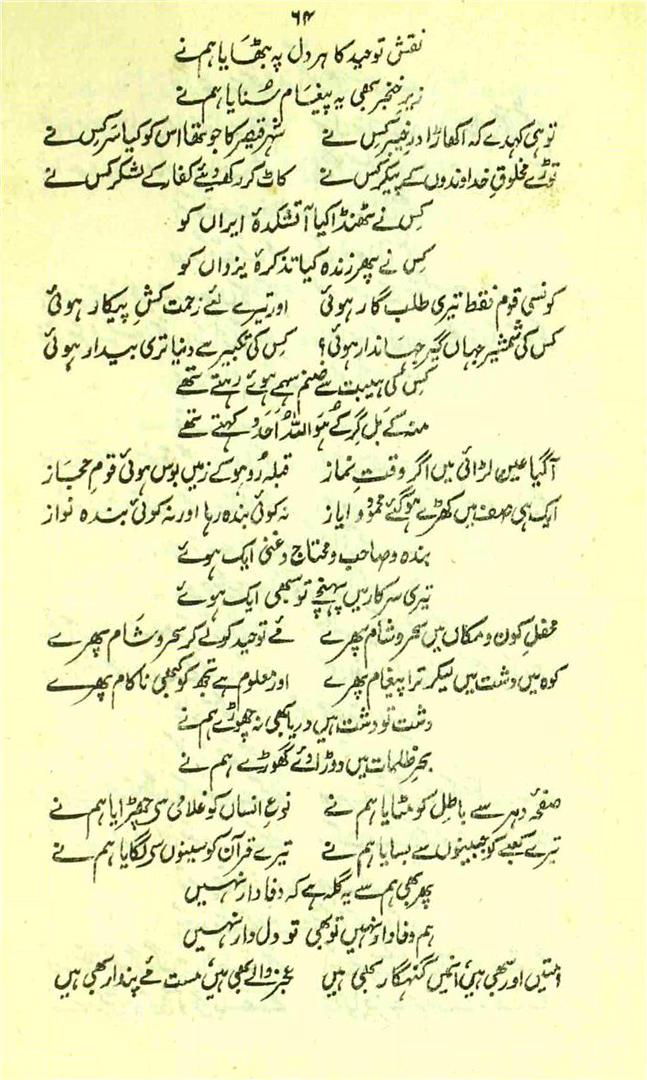 ۶۴
نقش توحید کا ہر دل پہ بٹھایا ہم نے
زیر خنجر بھی یہ پیغام سُنایا ہم نے
تو ہی کہدے کہ اکھاڑا درِ خیبر کس نے شہر قیصر کا جو تھا اس کو کیا سر کِس نے
توڑے مخلوقِ خداوندوں کے پیکر کس نے کاٹ کر رکھ دیئے کفار کے لشکر کس نے
کِس نے ٹھنڈا کیا آتشکدۂ ایراں کو
کِس نے پھر زندہ کیا تذکرۂ یزداں کو
کونسی قوم فقط تیری طلب گار ہوئی اور تیرے لئے زحمت کشِ پیکار ہوئی
کس کی شمشیر جہاں گیر جہاندار ہوئی؟ کِس کی تکبیر سے دنیا تری بیدار ہوئی
کِس کی ہیبت سے صنم سہمے ہوئے رہتے تھے
منہ کے بَل گر کے ہُوَ اللہُ اَحَد کہتے تھے
آگیا عین لڑائی میں اگر وقتِ نماز قبلہ رُو ہو کے زمیں بوس ہوئی قومِ حجاز
ایک ہی صف میں کھڑے ہوگئے محمود و ایاز نہ کوئی بندہ رہا اور نہ کوئی بندہ نواز
بندہ و صاحب و محتاج و غنی ایک ہوئے
تیری سرکار میں پہنچے تو سبھی ایک ہوئے
محفل کون و مکاں میں سحر و شام پھرے مئے توحید کو لے کر سحر و شام پھرے
کوہ میں دشت میں لیکر ترا پیغام پھرے اور معلوم ہے تجھ کو کبھی ناکام پھرے
دشت تو دشت ہیں دریا بھی نہ چھوڑے ہم نے
بحرِ ظلمات میں دوڑا دئے گھوڑے ہم نے
صفحۂ دہر سے باطِل کو مٹایا ہم نے نوعِ انساں کو غلامی سی چھڑایا ہم نے
تیرے کعبے کو جبینوں سے بسایا ہم نے تیرے قرآن کو سینوں سی لگایا ہم نے
پھر بھی ہم سے یہ گلہ ہے کہ وفادار نہیں
ہم وفادار نہیں تو بھی تو دل دار نہیں
امتیں اور بھی ہیں، انمیں گنہگار بھی ہیں عجز والے بھی ہیں، مست مئے پندار بھی ہیں